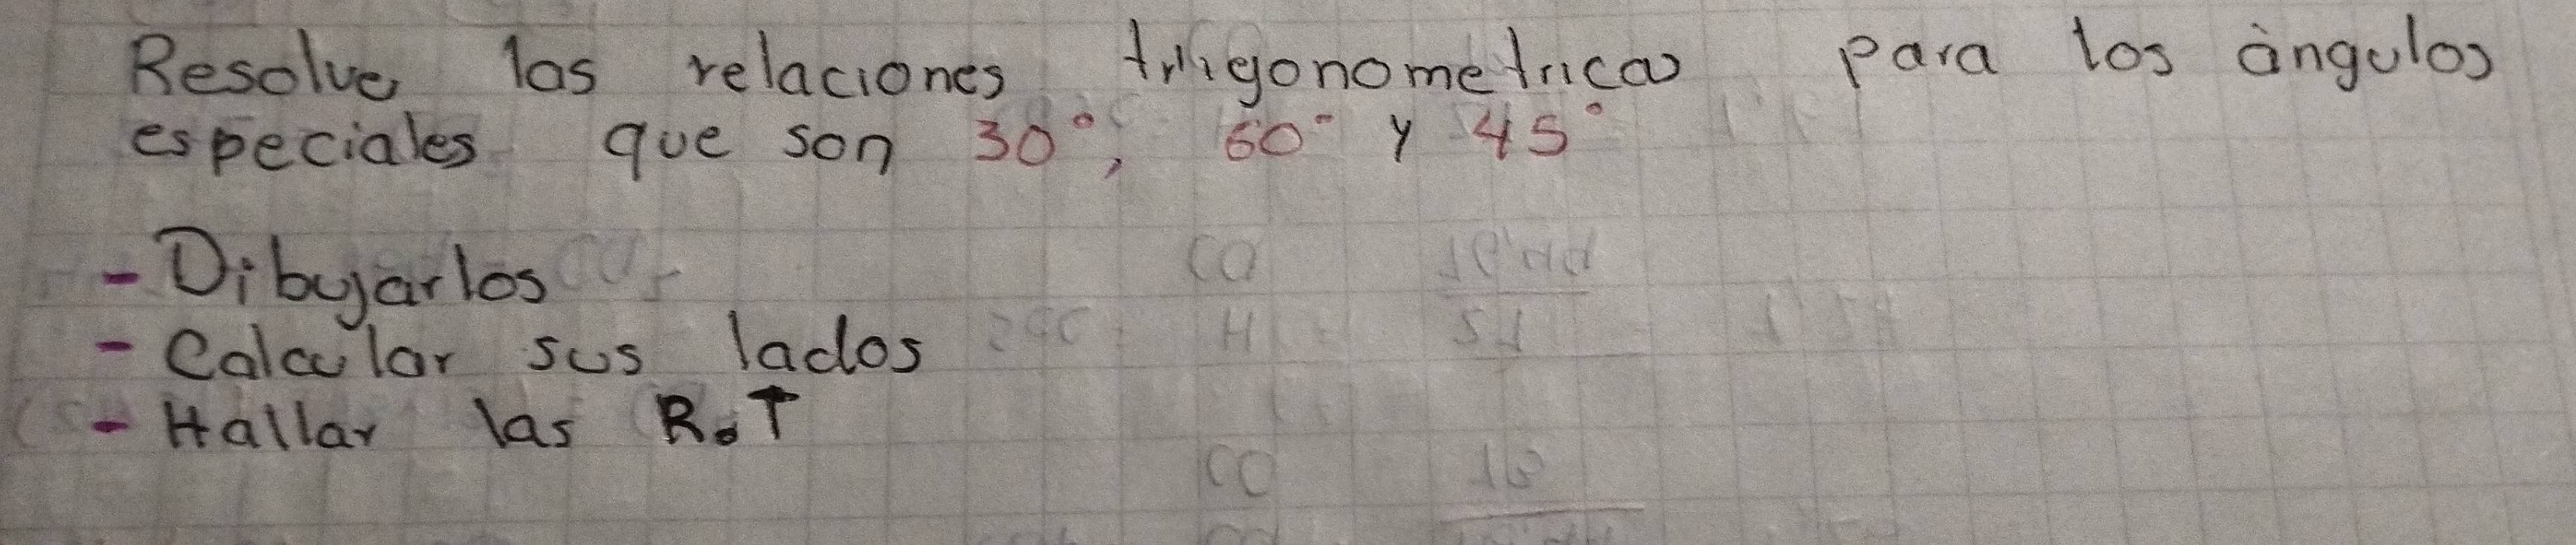 Resolver las relaciones trigonometricas para los ángulos
especiales que son 30°, 60° y 45°
- Dibujarlos
- Calcular sus lados
- Hallar las R.T